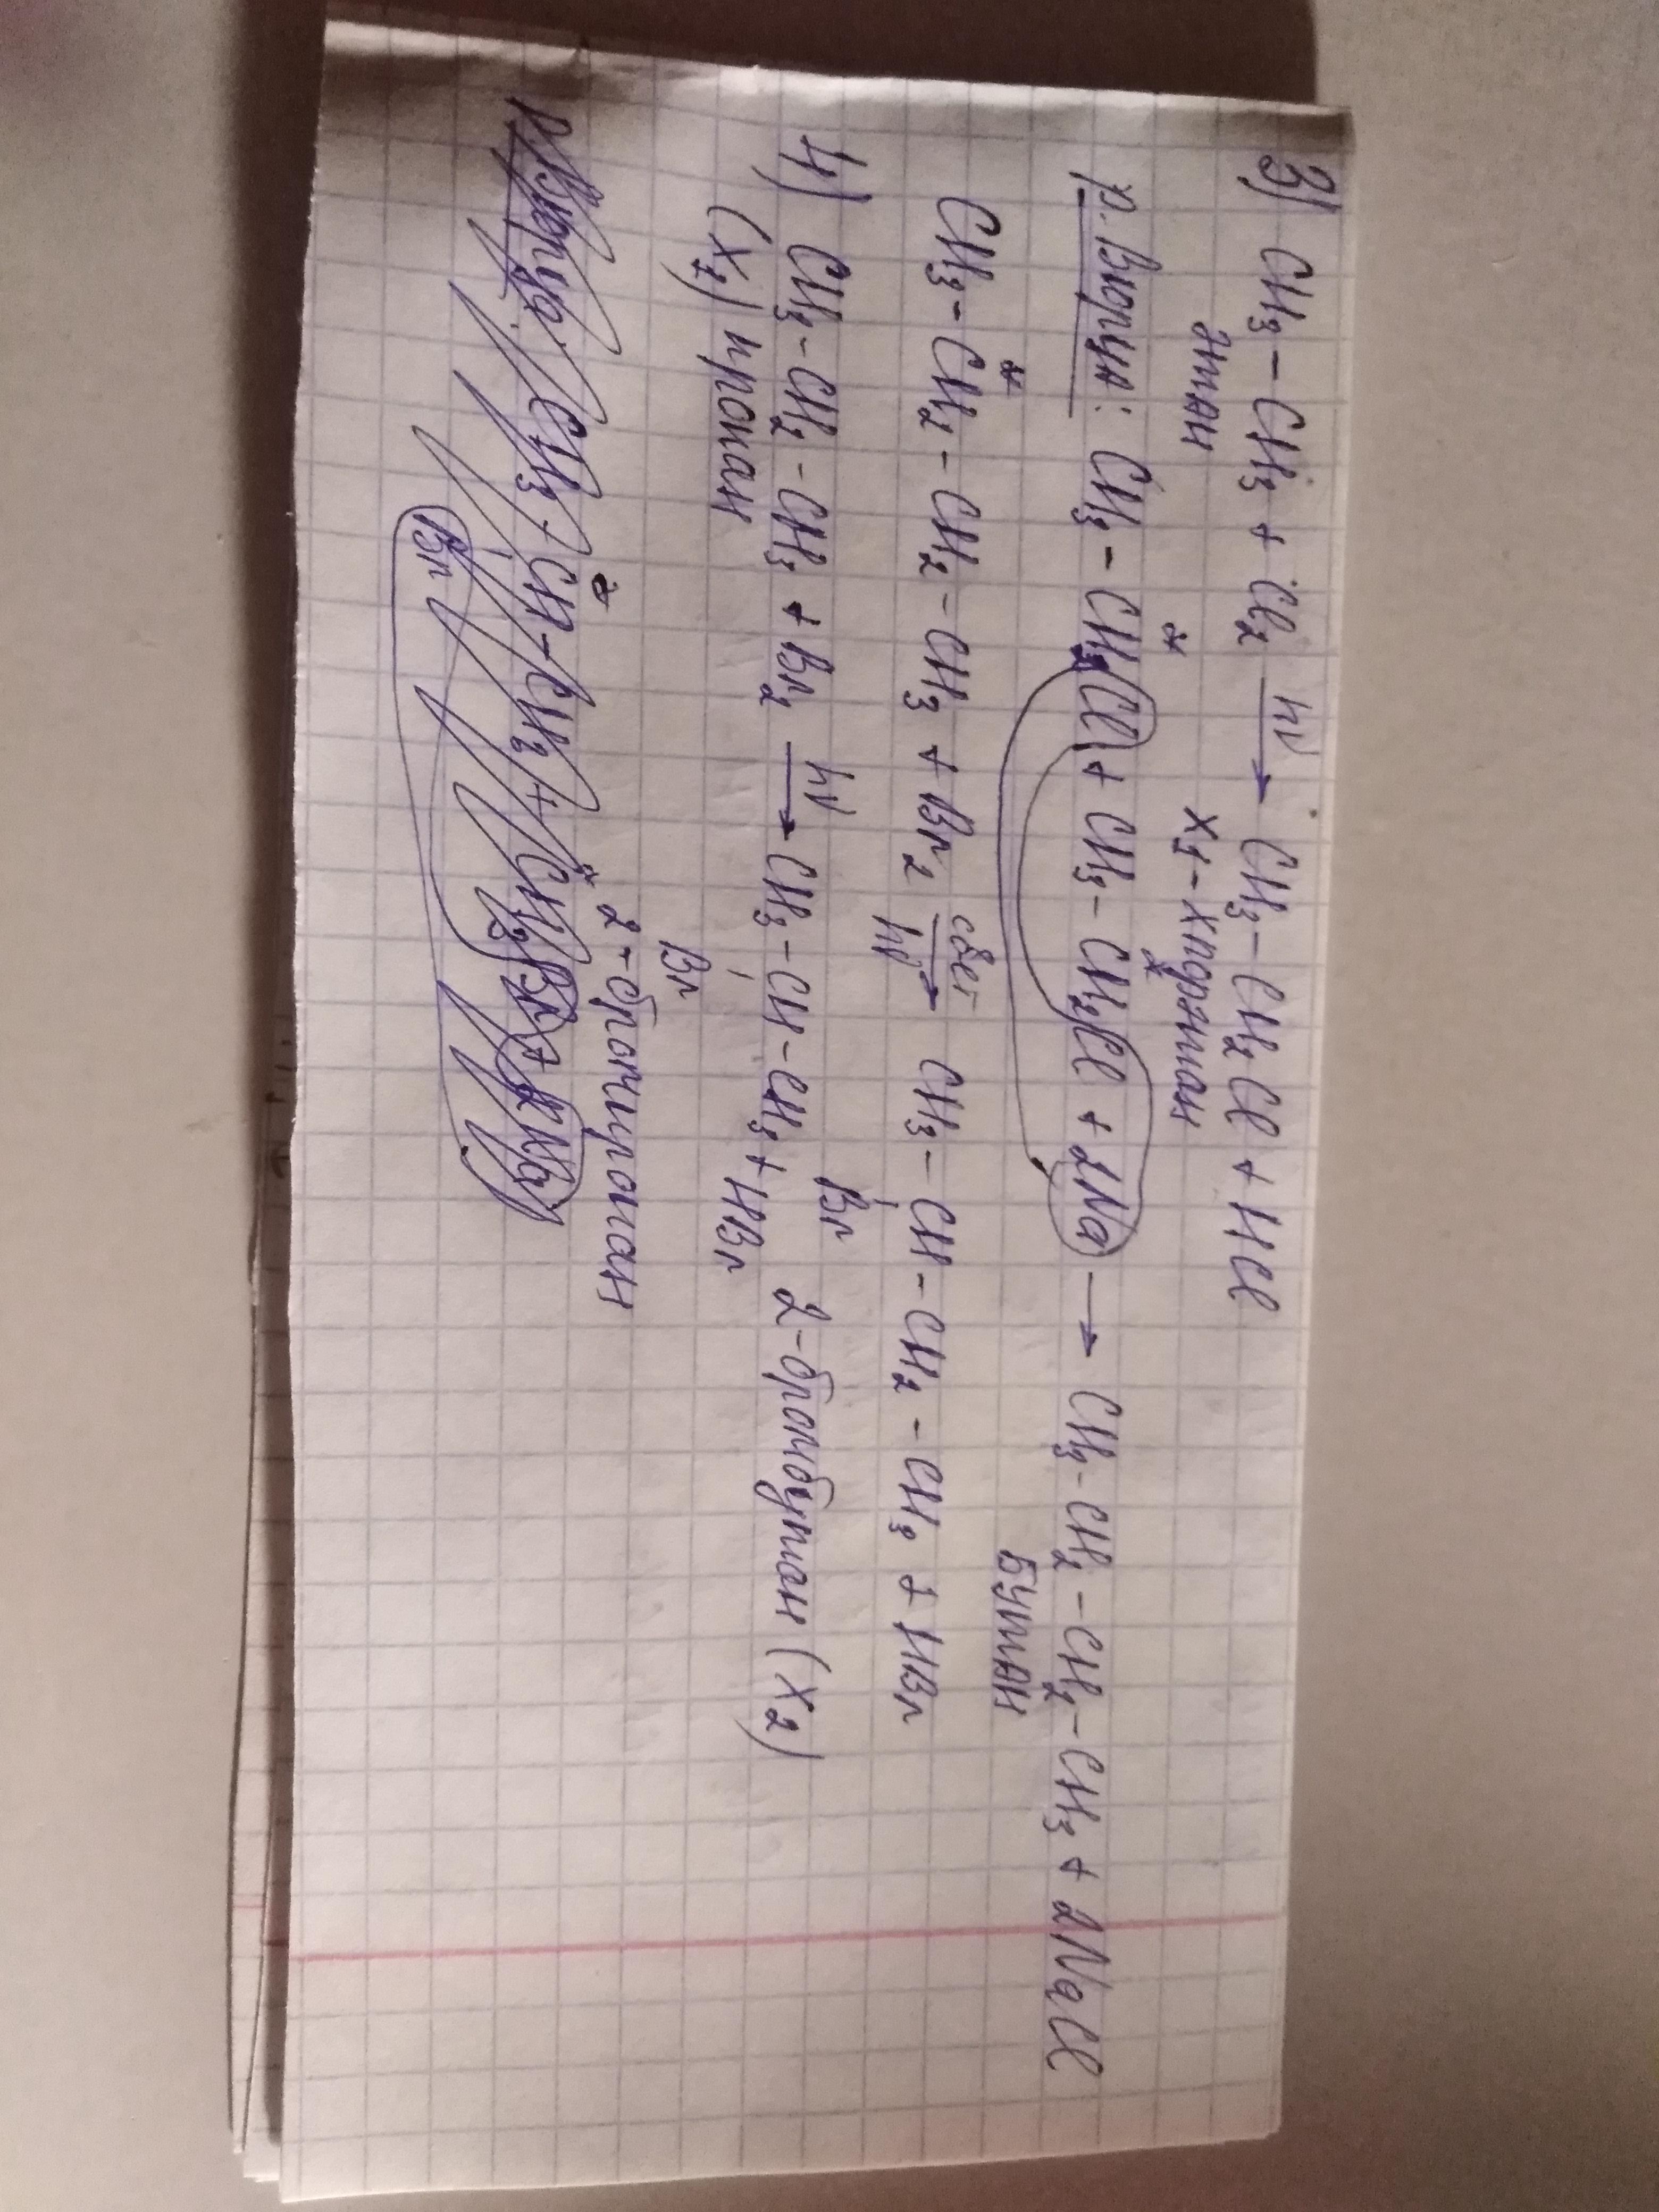 3) CH₃ – CH₃ + Cl₂ hν → CH₃ – CH₂Cl + HCl
этан X₁ - хлорэтан
р. Вюрца: CH₃ – CH₂Cl + CH₃ – CH₂Cl + 2Na → CH₃ - CH₂ – CH₂ – CH₃ + 2NaCl
бутан
CH₃ – CH₂ – CH₂ – CH₃ + Br₂ свет hν → CH₃ – CH – CH₂ – CH₃ + HBr
Br 2-бромбутан (X₂)
4) CH₃ – CH₂ – CH₃ + Br₂ hν → CH₃ – CH – CH₃ + HBr
(X₁) пропан Br
2-бромпропан